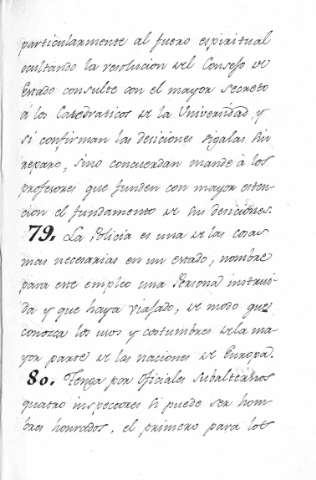 particularmente al fuero espiritual
ocultando la resolucion del Consejo de
Estado consulte con el mayor secreto
á los Catedraticos de la Universidad y
si confirman las desiciones sigalas sin
reparo, sino concuerdan mande á los
profesores que funden con mayor esten-
cion el fundamento de sus desiciones.
79. La Policia es una de las cosas
mas necesarias en un estado, nombre
para este empleo una Persona instrui-
da y que haya viajado, de modo que
conozca los usos y costumbres de la ma-
yor parte de las naciones de Europa.
80. Tenga por oficiales subalternos
quatro inspectores si puede ser hom-
bres honrados, el primero para los